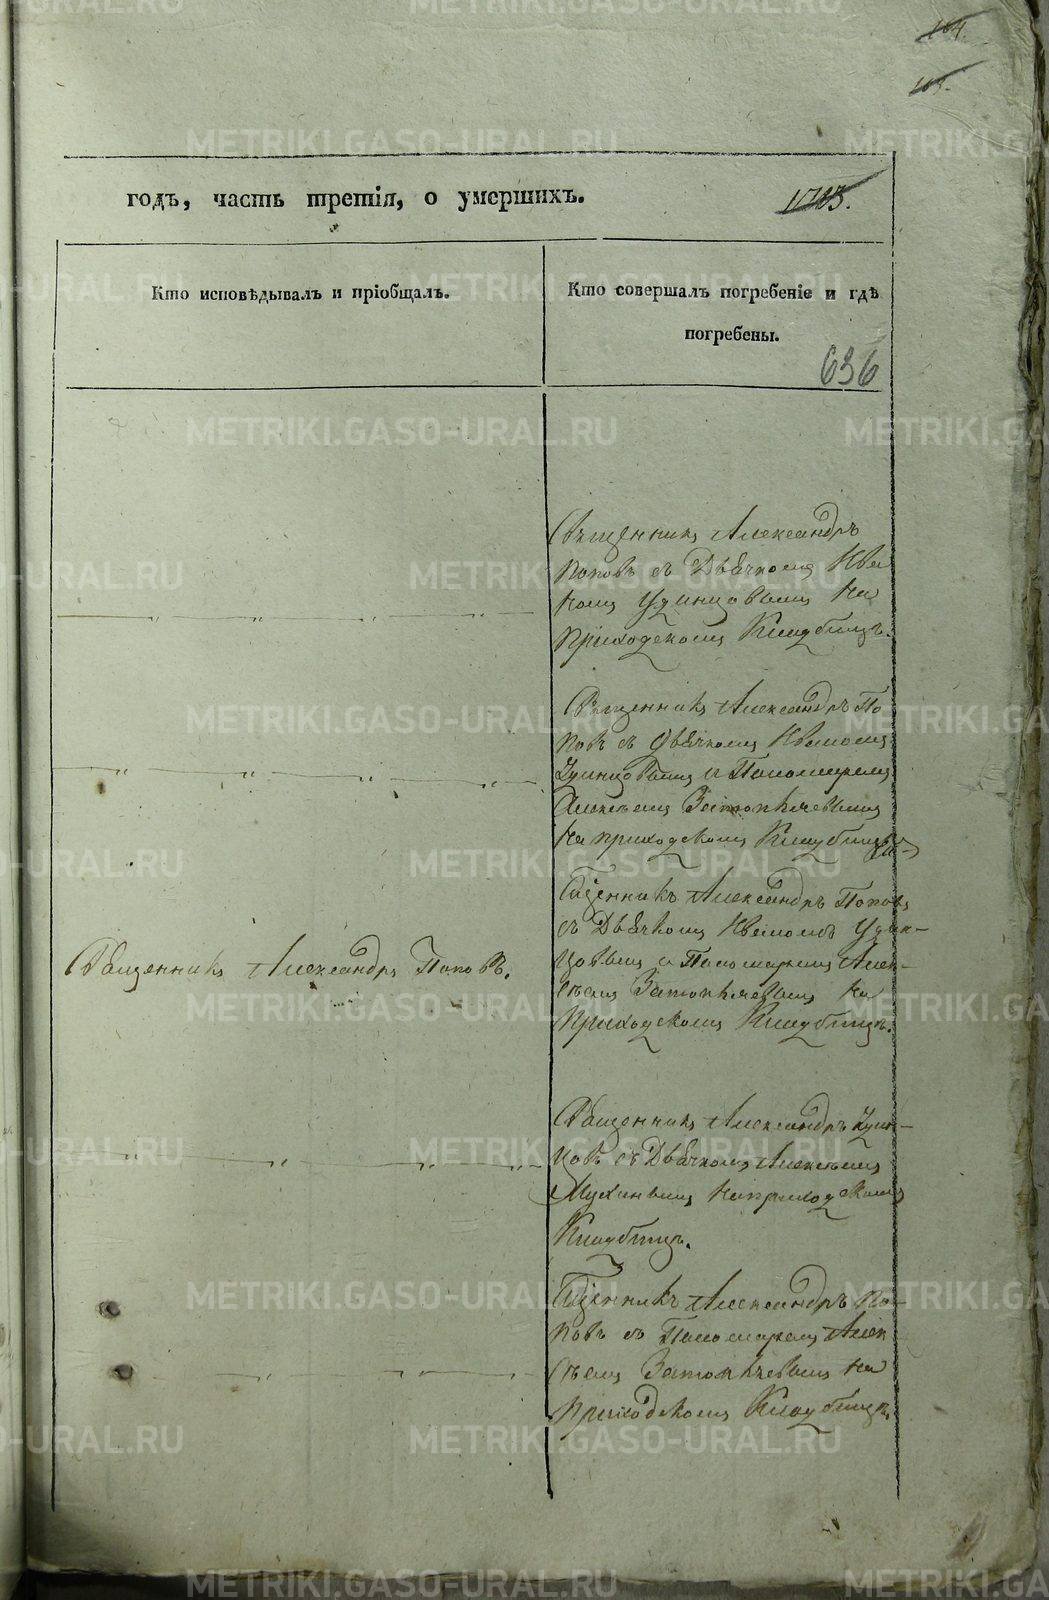 164.
163.
годъ, часть третія, о умершихъ.
1723.
Кто исповѣдывалъ и пріобщалъ.
Кто совершалъ погребеніе и гдѣ
погребены.
636
Священникъ Александръ
Поповъ съ Дьячкомъ Ива
номъ Удинцовымъ На
Приходскомъ Кладбищѣ.
Священникъ Александръ По
повъ съ Дьячкомъ Иваномъ
Удинцовымъ и Пономаремъ
Алексѣемъ
На приходскомъ Кладбищѣ
Священникъ Александръ Поповъ.
Сщенникъ Александръ Поповъ
съ Дьячкомъ Иваномъ Удин-
цовымъ и Пономаремъ Алек-
сѣемъ На
Приходскомъ Кладбищѣ.
Священникъ Александръ Удин-
цовъ съ Дьячкомъ Алексѣемъ
Мухинымъ На приходскомъ
Кладбищѣ.
Сщенникъ Александръ По-
повъ съ Пономаремъ Алек
сѣемъ На
Приходскомъ Кладбищѣ.
METRIKI.GASO-URAL.RU